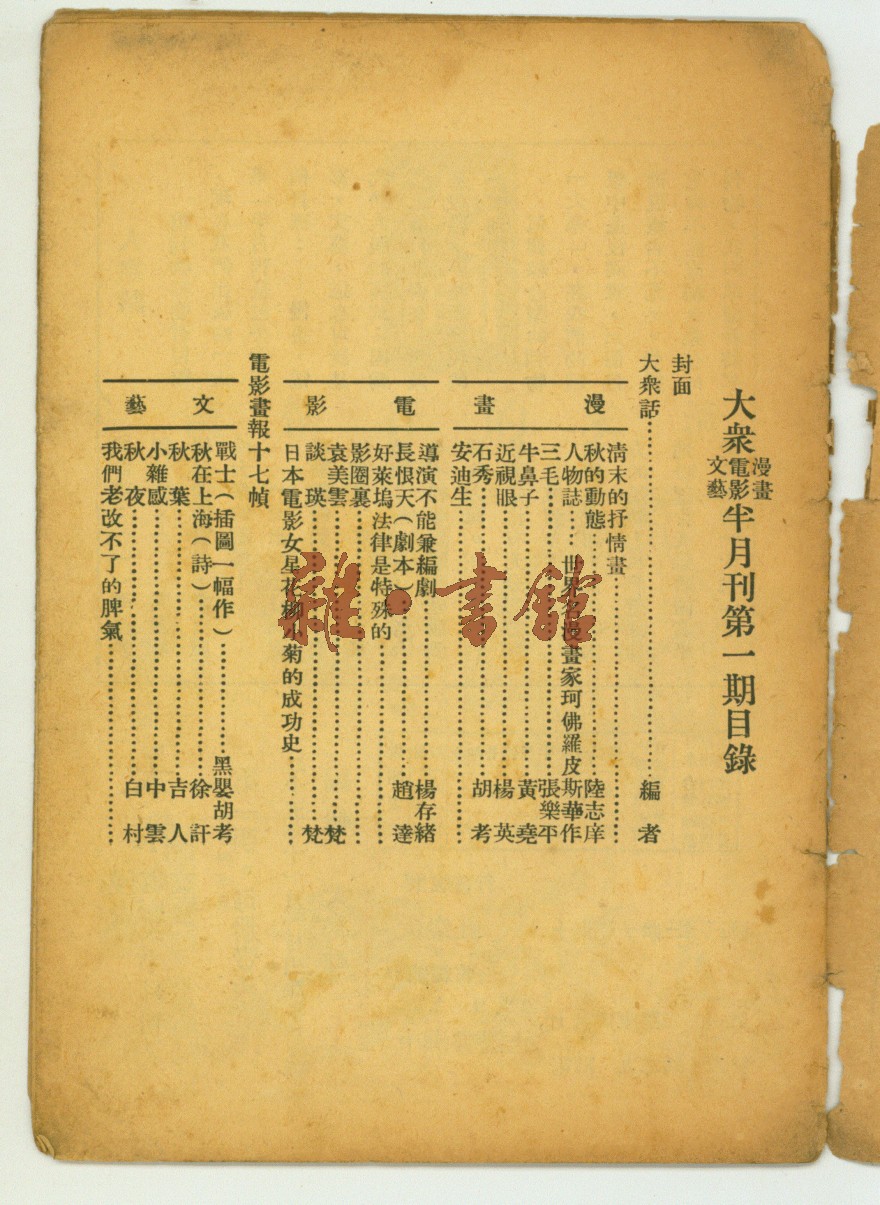 大衆漫畫電影文藝半月刊第一期目錄
封面
大衆話……編者
漫畫
清末的抒情畫……
秋的動態……陸志庠
人物誌……世界名漫畫家珂佛羅皮斯華作
三毛……張樂平
牛鼻子……黃堯
近視眼……楊英
石秀……胡考
安迪生……
電影
導演不能兼編劇……楊存緒
長恨天（劇本）……趙達
好萊塢法律是特殊的……
影圈裏……
袁美雲……梵
談瑛……梵
日本電影女星花柳小菊的成功史……
電影畫報十七幀
文藝
戰士（插圖一幅作）……黑嬰胡考
秋在上海（詩）……徐訏
秋葉……吉人
小雜感……中雲
秋夜……白村
我們老改不了的脾氣……
雜·書館